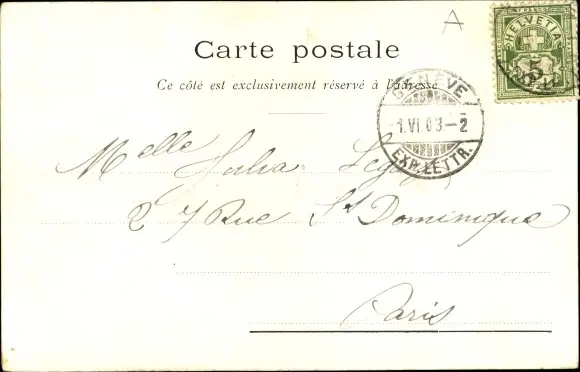 A
HELVETIA
5
Carte postale
Ce côté est exclusivement réservé à l'adresse
GENÈVE
1.VI.03-2
EXP. LETTR.
Melle Julia
27 Rue St Dominique
Paris